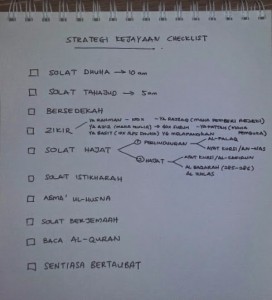 STRATEGI KEJAYAAN CHECKLIST
SOLAT DHUHA → 10 min
SOLAT TAHAJUD → 5 am
BERSEDEKAH
ZIKIR
YA RAHMAN - 100X - YA RAZZAQ (MAHA MEMBERI REZEKI)
YA AZIZ (MAHA MULIA) → 80X SUBUH - YA FATTAH (MAHA PEMBUKA)
YA BASIT YG MELAPANGKAN
SOLAT HAJAT
① PERLINDUNGAN
AL-FALAQ
AYAT KURSI/AN-NAS
② HAJAT
AYAT KURSI/AL-KAFIRUN
AL BAQARAH (285-286)
AL IKLAS
SOLAT ISTIKHARAH
ASMA' UL-HUSNA
SOLAT BERJEMAAH
BACA AL-QURAN
SENTIASA BERTAUBAT